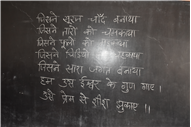 जिसने सूरज चाँद बनाया
जिसने तारों को चमकाया
जिसने फूलों को
जिसने चिड़ियों को
जिसने सारा जगत बनाया
हम उस ईश्वर के गुण गाएं।
उसे प्रेम से शीश झुकाएं।।